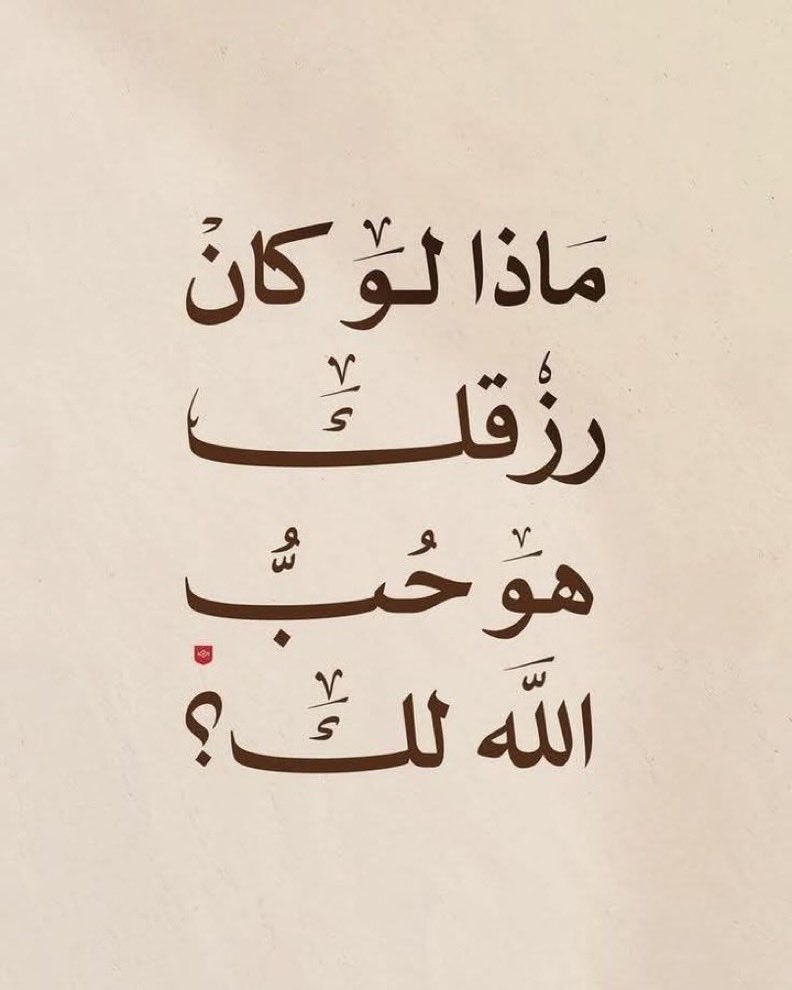 مَاذا لَو كانْ
رزْقلكَ
هوَ حُبُّ
اللَّه لكَ؟